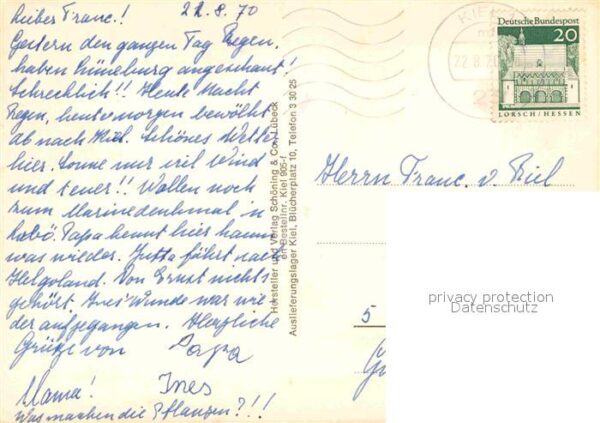 Lieber Franc.! 22.8.70
Gestern den ganzen Tag Regen,
haben Lüneburg angeschaut!
Schrecklich!! Heute Nacht
Regen, heute morgen bewölkt
ab nach Kiel. Schönes Wetter
hier. Sonne nur viel Wind
und teuer!! Wollen noch
zum Marinedenkmal in
Laboe. Papa kennt hier kaum
was wieder. Jutta fährt nach
Helgoland. Von Ernst nichts
gehört. Ines' Wunde war wie
der aufgegangen. Herzliche
Grüße von Papa
Mama! Ines
Was machen die Pflanzen?!!
Hersteller und Verlag Schöning & Co., Lübeck
Bestellnr. Kiel 905-f
Auslieferungslager Kiel, Blücherplatz 10, Telefon 3 30 25
KIEL
22.8.70
23
Deutsche Bundespost
20
LORSCH/HESSEN
Herrn Franc. v. Riel
5
privacy protection
Datenschutz